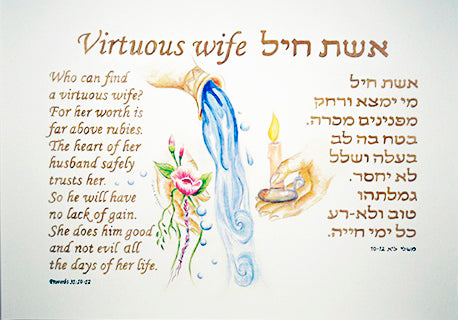 Virtuous wife אשת חיל
Who can find
a virtuous wife?
For her worth is
far above rubies.
The heart of her
husband safely
trusts her.
So he will have
no lack of gain.
She does him good
and not evil all
the days of her life.
Proverbs 31:10-12
אשת חיל
מי ימצא ורחק
מפנינים מכרה.
בטח בה לב
בעלה ושלל
לא יחסר.
גמלתהו
טוב ולא-רע
כל ימי חייה.
משלי ל״א 10-12